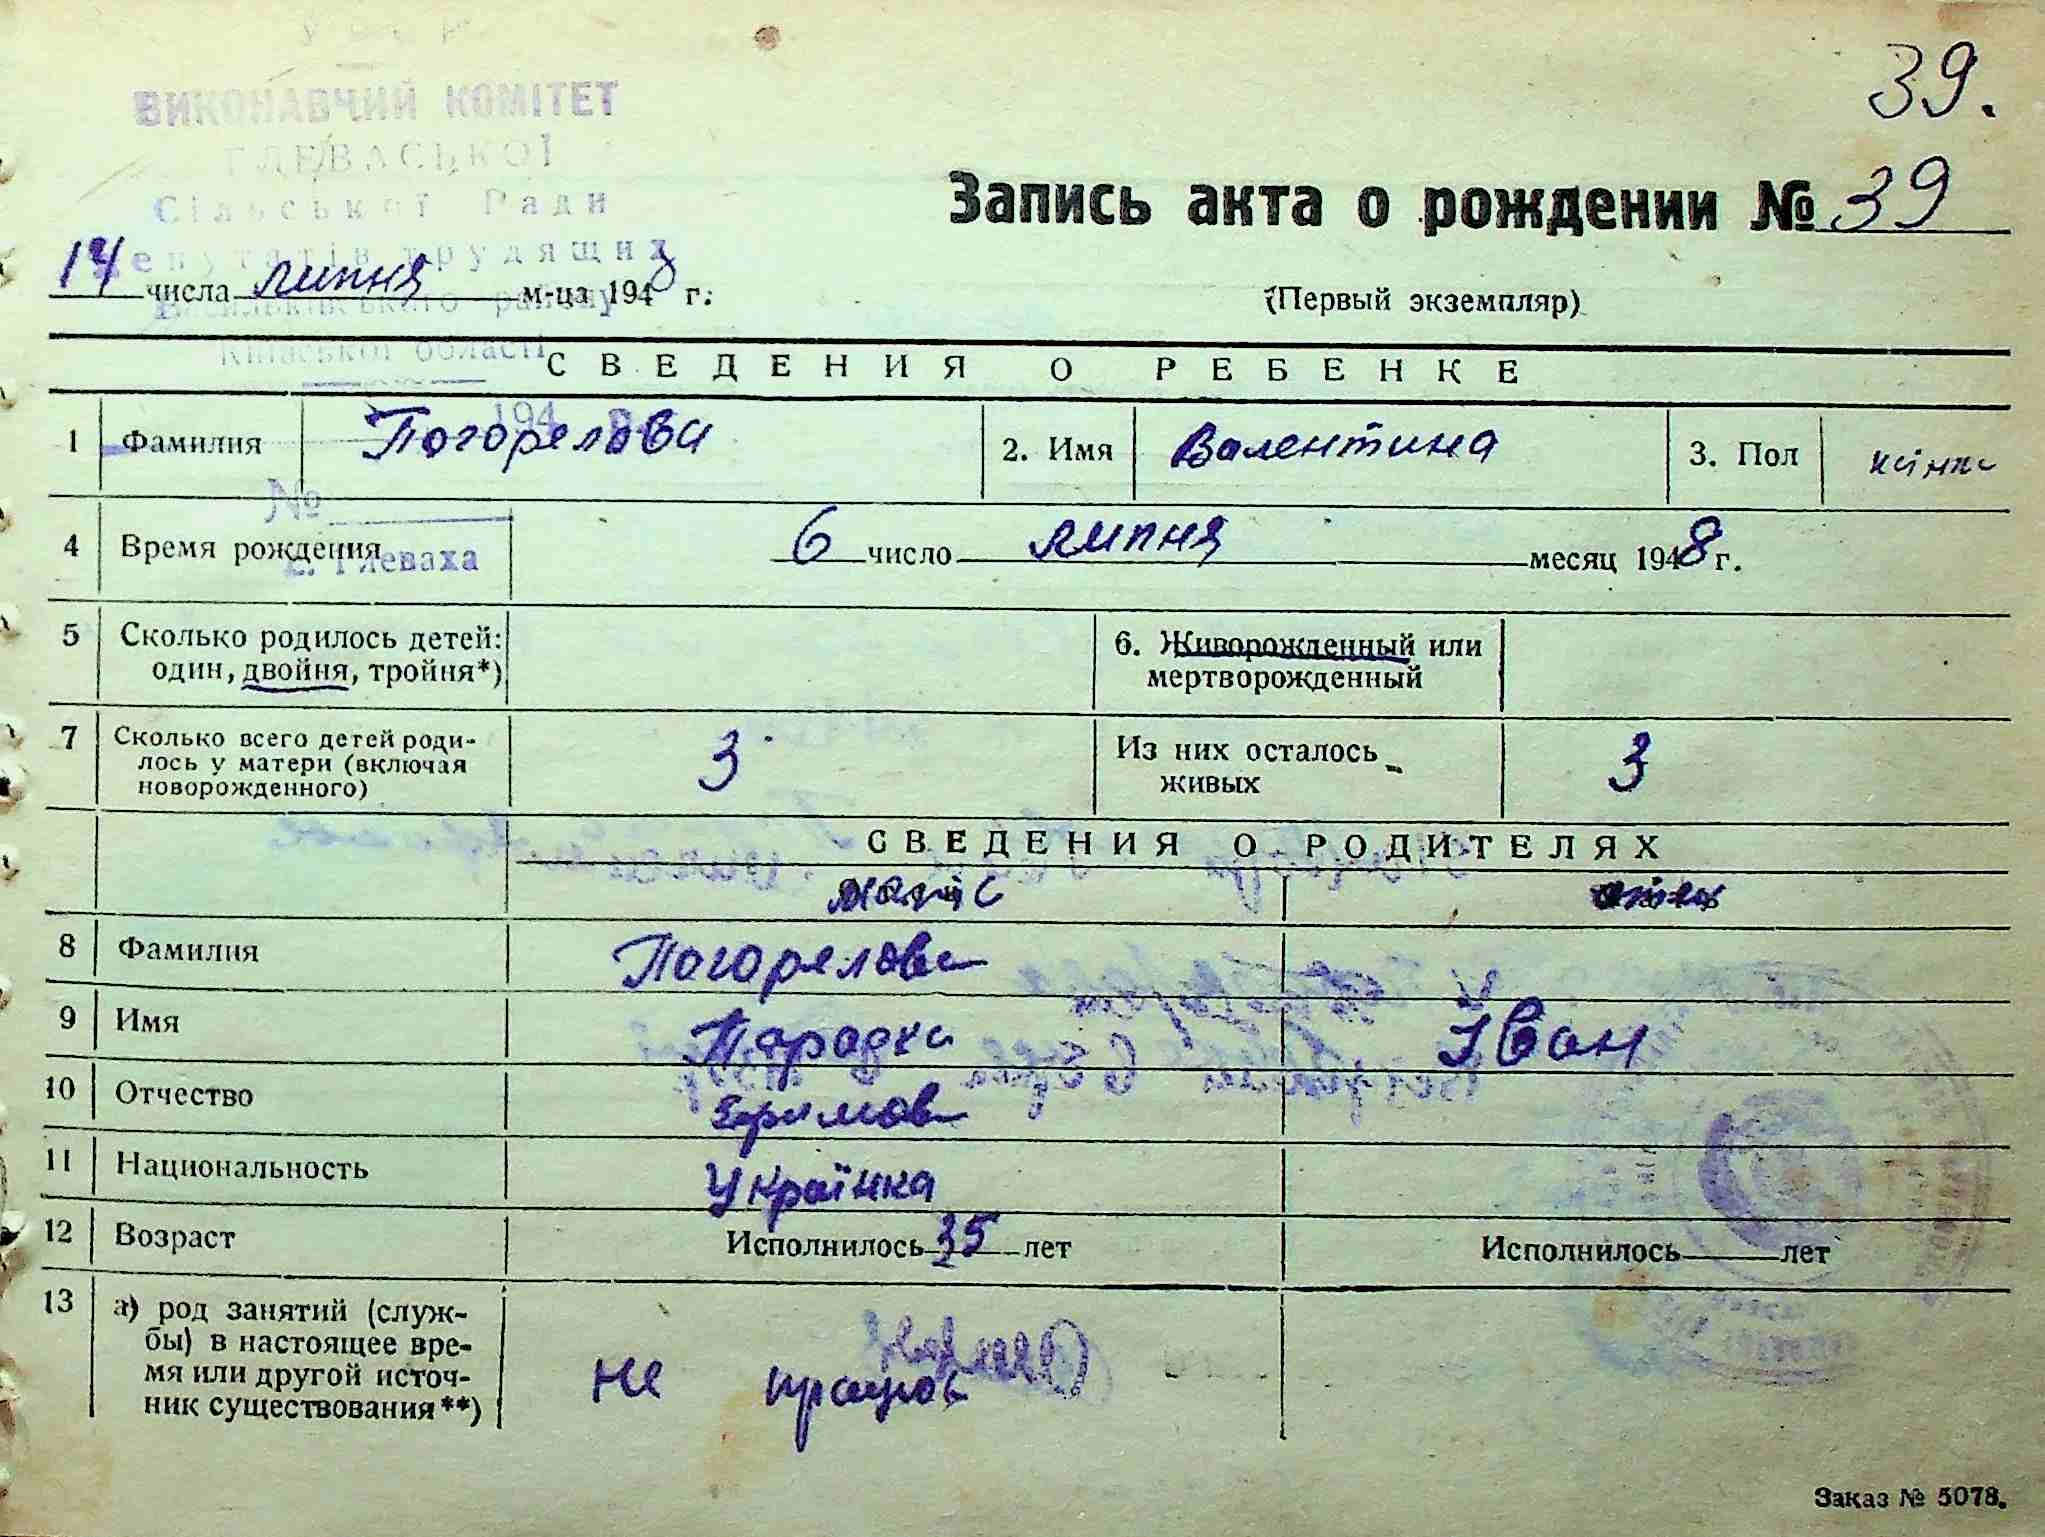 39.
ВИКОНАВЧИЙ КОМІТЕТ
ГЛЕВАСЬКОЇ
Сільської Ради
депутатів трудящих
Васильківського району
Київської області
194
№
с. Глеваха
Запись акта о рождении № 39
14 числа липня м-ца 1948 г.
(Первый экземпляр)
СВЕДЕНИЯ О РЕБЕНКЕ
1 Фамилия Погорелова 2. Имя Валентина 3. Пол
4 Время рождения 6 число липня месяц 1948 г.
5 Сколько родилось детей: 6. Живорожденный или
один, двойня, тройня*) мертворожденный
7 Сколько всего детей роди- 3 Из них осталось 3
лось у матери (включая живых
новорожденного)
СВЕДЕНИЯ О РОДИТЕЛЯХ
8 Фамилия Погорелова
9 Имя Параска Іван
10 Отчество
11 Национальность Українка
12 Возраст Исполнилось 35 лет Исполнилось лет
13 а) род занятий (служ-
бы) в настоящее вре-
мя или другой источ- не працює
ник существования**)
Заказ № 5078.